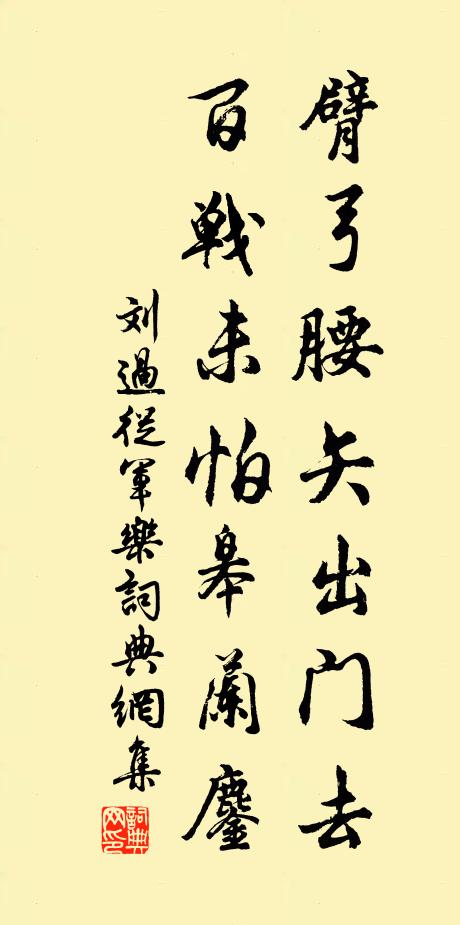 臂弓腰矢出門去
百戦未怕皋蘭鏖
刘過從軍樂詞典網集
詞典网印